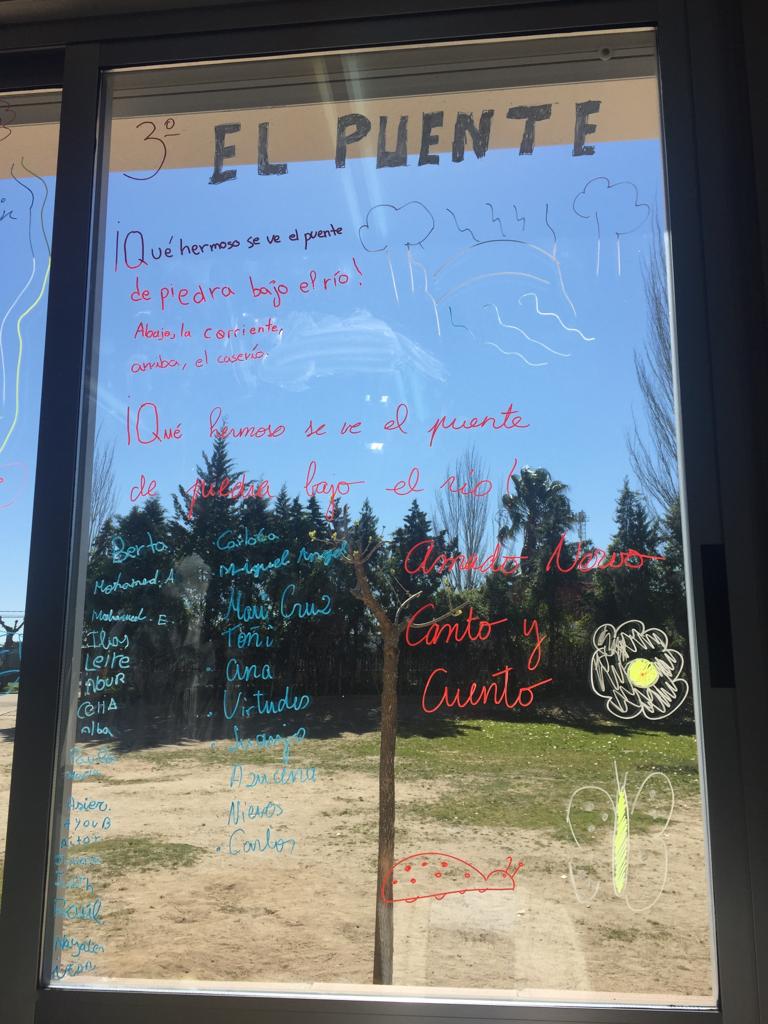 3º EL PUENTE
¡Qué hermoso se ve el puente
de piedra bajo el río!
Abajo, la corriente,
arriba, el caserío.
¡Qué hermoso se ve el puente
de piedra bajo el río!
Amado Nervo
Canto y
Cuento
Berta
Mohamed. A
Mohamed. E
Leire
NOUR
CELIA
alba
Asier.
AYOUB
aitor
Raúl
Miguel Angel
Mari Cruz
Toñi
Ana
Virtudes
Azucena
Nieves
Carlos